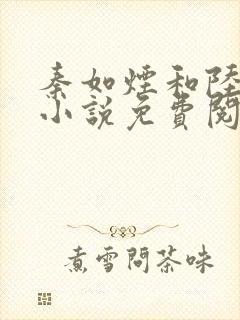 秦如煙和陸
小說免費閱
煮雪問茶味